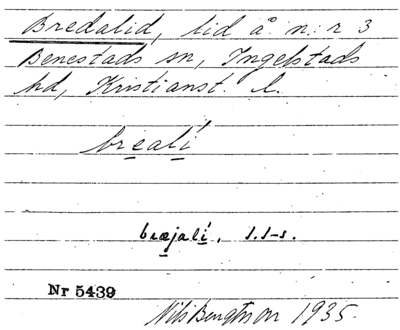 Bredalid, lid å n:r 3
Benestads sn, Ingelstads
hd, Kristianst. l.
brealí
bræjalí, s.l-s.
Nr 5439
Nils Bengtsson 1935.